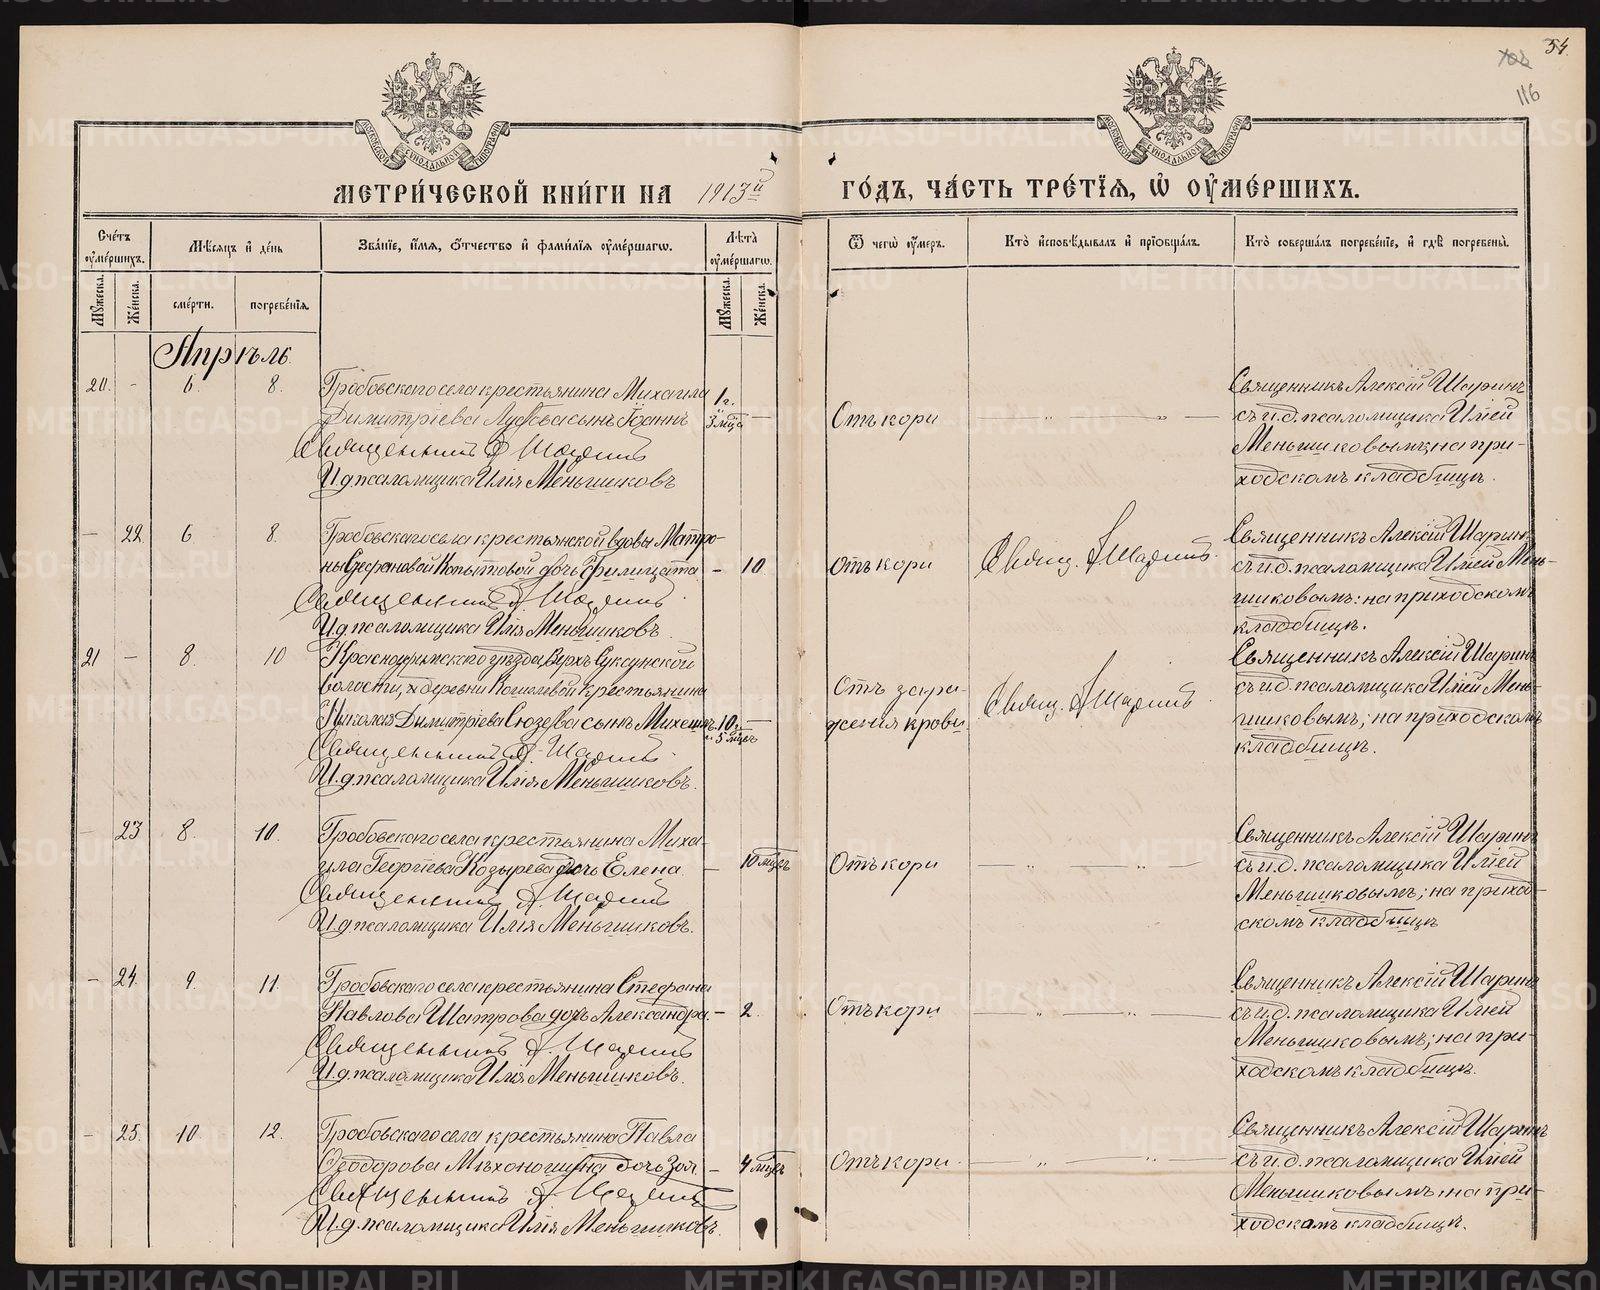 54.
116
МОСКОВСКОЙ СѴНОДАЛЬНОЙ ТИПОГРАФІИ
МОСКОВСКОЙ СѴНОДАЛЬНОЙ ТИПОГРАФІИ
МЕТРИ́ЧЕСКОЙ КНИ́ГИ НА 1913й
ГО́ДЪ, ЧА́СТЬ ТРЕ́ТІѦ, Ѡ҆ ОУ҆МЕ́РШИХЪ.
Сче́тъ оу҆ме́ршихъ.
Мꙋ́жеска.
Же́нска.
Мѣ́сяцъ и҆ де́нь
сме́рти.
погребе́нїѧ.
Зва́нїе, и҆́мѧ, ѻ҆́тчество и҆ фами́лїѧ оу҆ме́ршагѡ.
Лѣ́та оу҆ме́ршагѡ.
Мꙋ́жеска.
Же́нска.
Ѿ чегѡ̀ оу҆́меръ.
Кто̀ и҆сповѣ́дывалъ и҆ прїѡбща́лъ.
Кто̀ соверша́лъ погребе́нїе, и҆ гдѣ̀ погребены̀.
Апрѣль
20. - 6. 8.
Гробовскаго села крестьянина Михаила
Димитріева сынъ Іоаннъ
Священникъ А. Шаринъ
И.д. псаломщика Илія Меньшиковъ
1 г. и 3 мѣс. —
Отъ кори
— „ — „ —
Священникъ Алексій Шаринъ
съ и.д. псаломщика Иліей
Меньшиковымъ; на при-
ходскомъ кладбищѣ.
- 22 6 8.
Гробовскаго села крестьянской вдовы Матро-
ны Стефановой Копытовой дочь Филицата
Священникъ А. Шаринъ
И.д. псаломщика Илія Меньшиковъ.
- 10
Отъ кори
Свящ. А Шаринъ
Священникъ Алексій Шаринъ
съ и.д. псаломщика Иліей Мень-
шиковымъ: на приходскомъ
кладбищѣ.
21 - 8. 10
Красноуфимскаго уѣзда Верхъ Суксунской
волости, деревни крестьянина
Николая Димитріева Сюзева сынъ
Священникъ А. Шаринъ.
И.д. псаломщика Илія Меньшиковъ.
10 л. и 5 мѣс. —
Отъ зара-
женія крови
Свящ. А Шаринъ
Священникъ Алексій Шаринъ
съ и.д. псаломщика Иліей Мень-
шиковымъ; на приходскомъ
кладбищѣ.
- 23 8. 10.
Гробовскаго села крестьянина Миха-
ила Георгіева Козырева дочь Елена.
Священникъ А. Шаринъ
И.д. псаломщика Илія Меньшиковъ.
- 10 мѣс.
Отъ кори
— „ — „ —
Священникъ Алексій Шаринъ
съ и.д. псаломщика Иліей
Меньшиковымъ; на приход-
скомъ кладбищѣ
- 24. 9. 11.
Гробовскаго села крестьянина Стефана
Павлова Шатрова дочь Александра.
Священникъ А. Шаринъ
И.д. псаломщика Илія Меньшиковъ.
- 2.
Отъ кори
— „ — „ —
Священникъ Алексій Шаринъ
съ и.д. псаломщика Иліей
Меньшиковымъ; на при-
ходскомъ кладбищѣ.
- 25. 10. 12.
Гробовскаго села крестьянина Павла
Ѳеодорова Мѣхоношина дочь Зоя.
Священникъ А. Шаринъ
И.д. псаломщика Илія Меньшиковъ.
- 4 мѣс.
Отъ кори.
— „ — „ —
Священникъ Алексій Шаринъ
съ и.д. псаломщика Иліей
Меньшиковымъ на при-
ходскомъ кладбищѣ.
METRIKI.GASO-URAL.RU